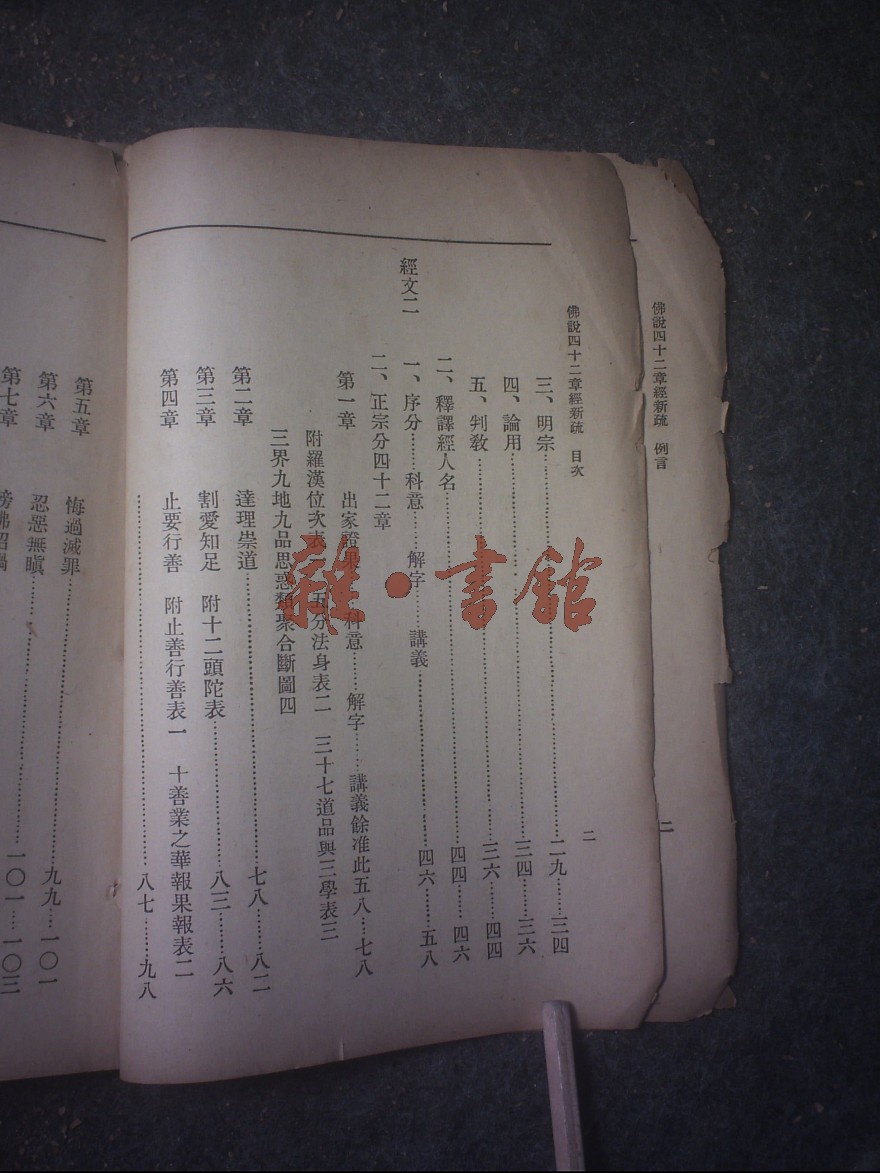 佛說四十二章經新疏　例言
二
佛說四十二章經新疏　目次
二
三、明宗……二九……三四
四、論用……三四……三六
五、判教……三六……四四
二、釋譯經人名……四四……四六
經文二
一、序分……科意……解字……講義……四六……五八
二、正宗分四十二章
第一章　出家證果……科意……解字……講義餘准此五八……七八
附羅漢位次表一　五分法身表二　三十七道品與三學表三
三界九地九品思惑類聚合斷圖四
第二章　達理崇道……七八……八二
第三章　割愛知足　附十二頭陀表……八三……八六
第四章　止要行善　附止善行善表一　十善業之華報果報表二
……八七……九八
第五章　悔過滅罪
第六章　忍惡無瞋……九九……一〇一
第七章　謗佛招禍……一〇一……一〇三
雜·書館